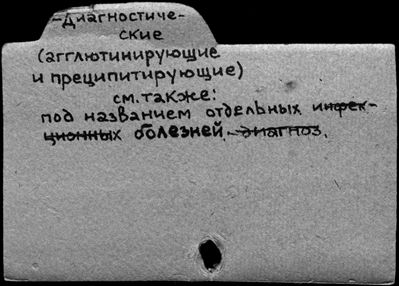 -Диагностиче-
ские
(агглютинирующие
и преципитирующие)
см. также:
под названием отдельных инфек-
ционных болезней. - диагноз.